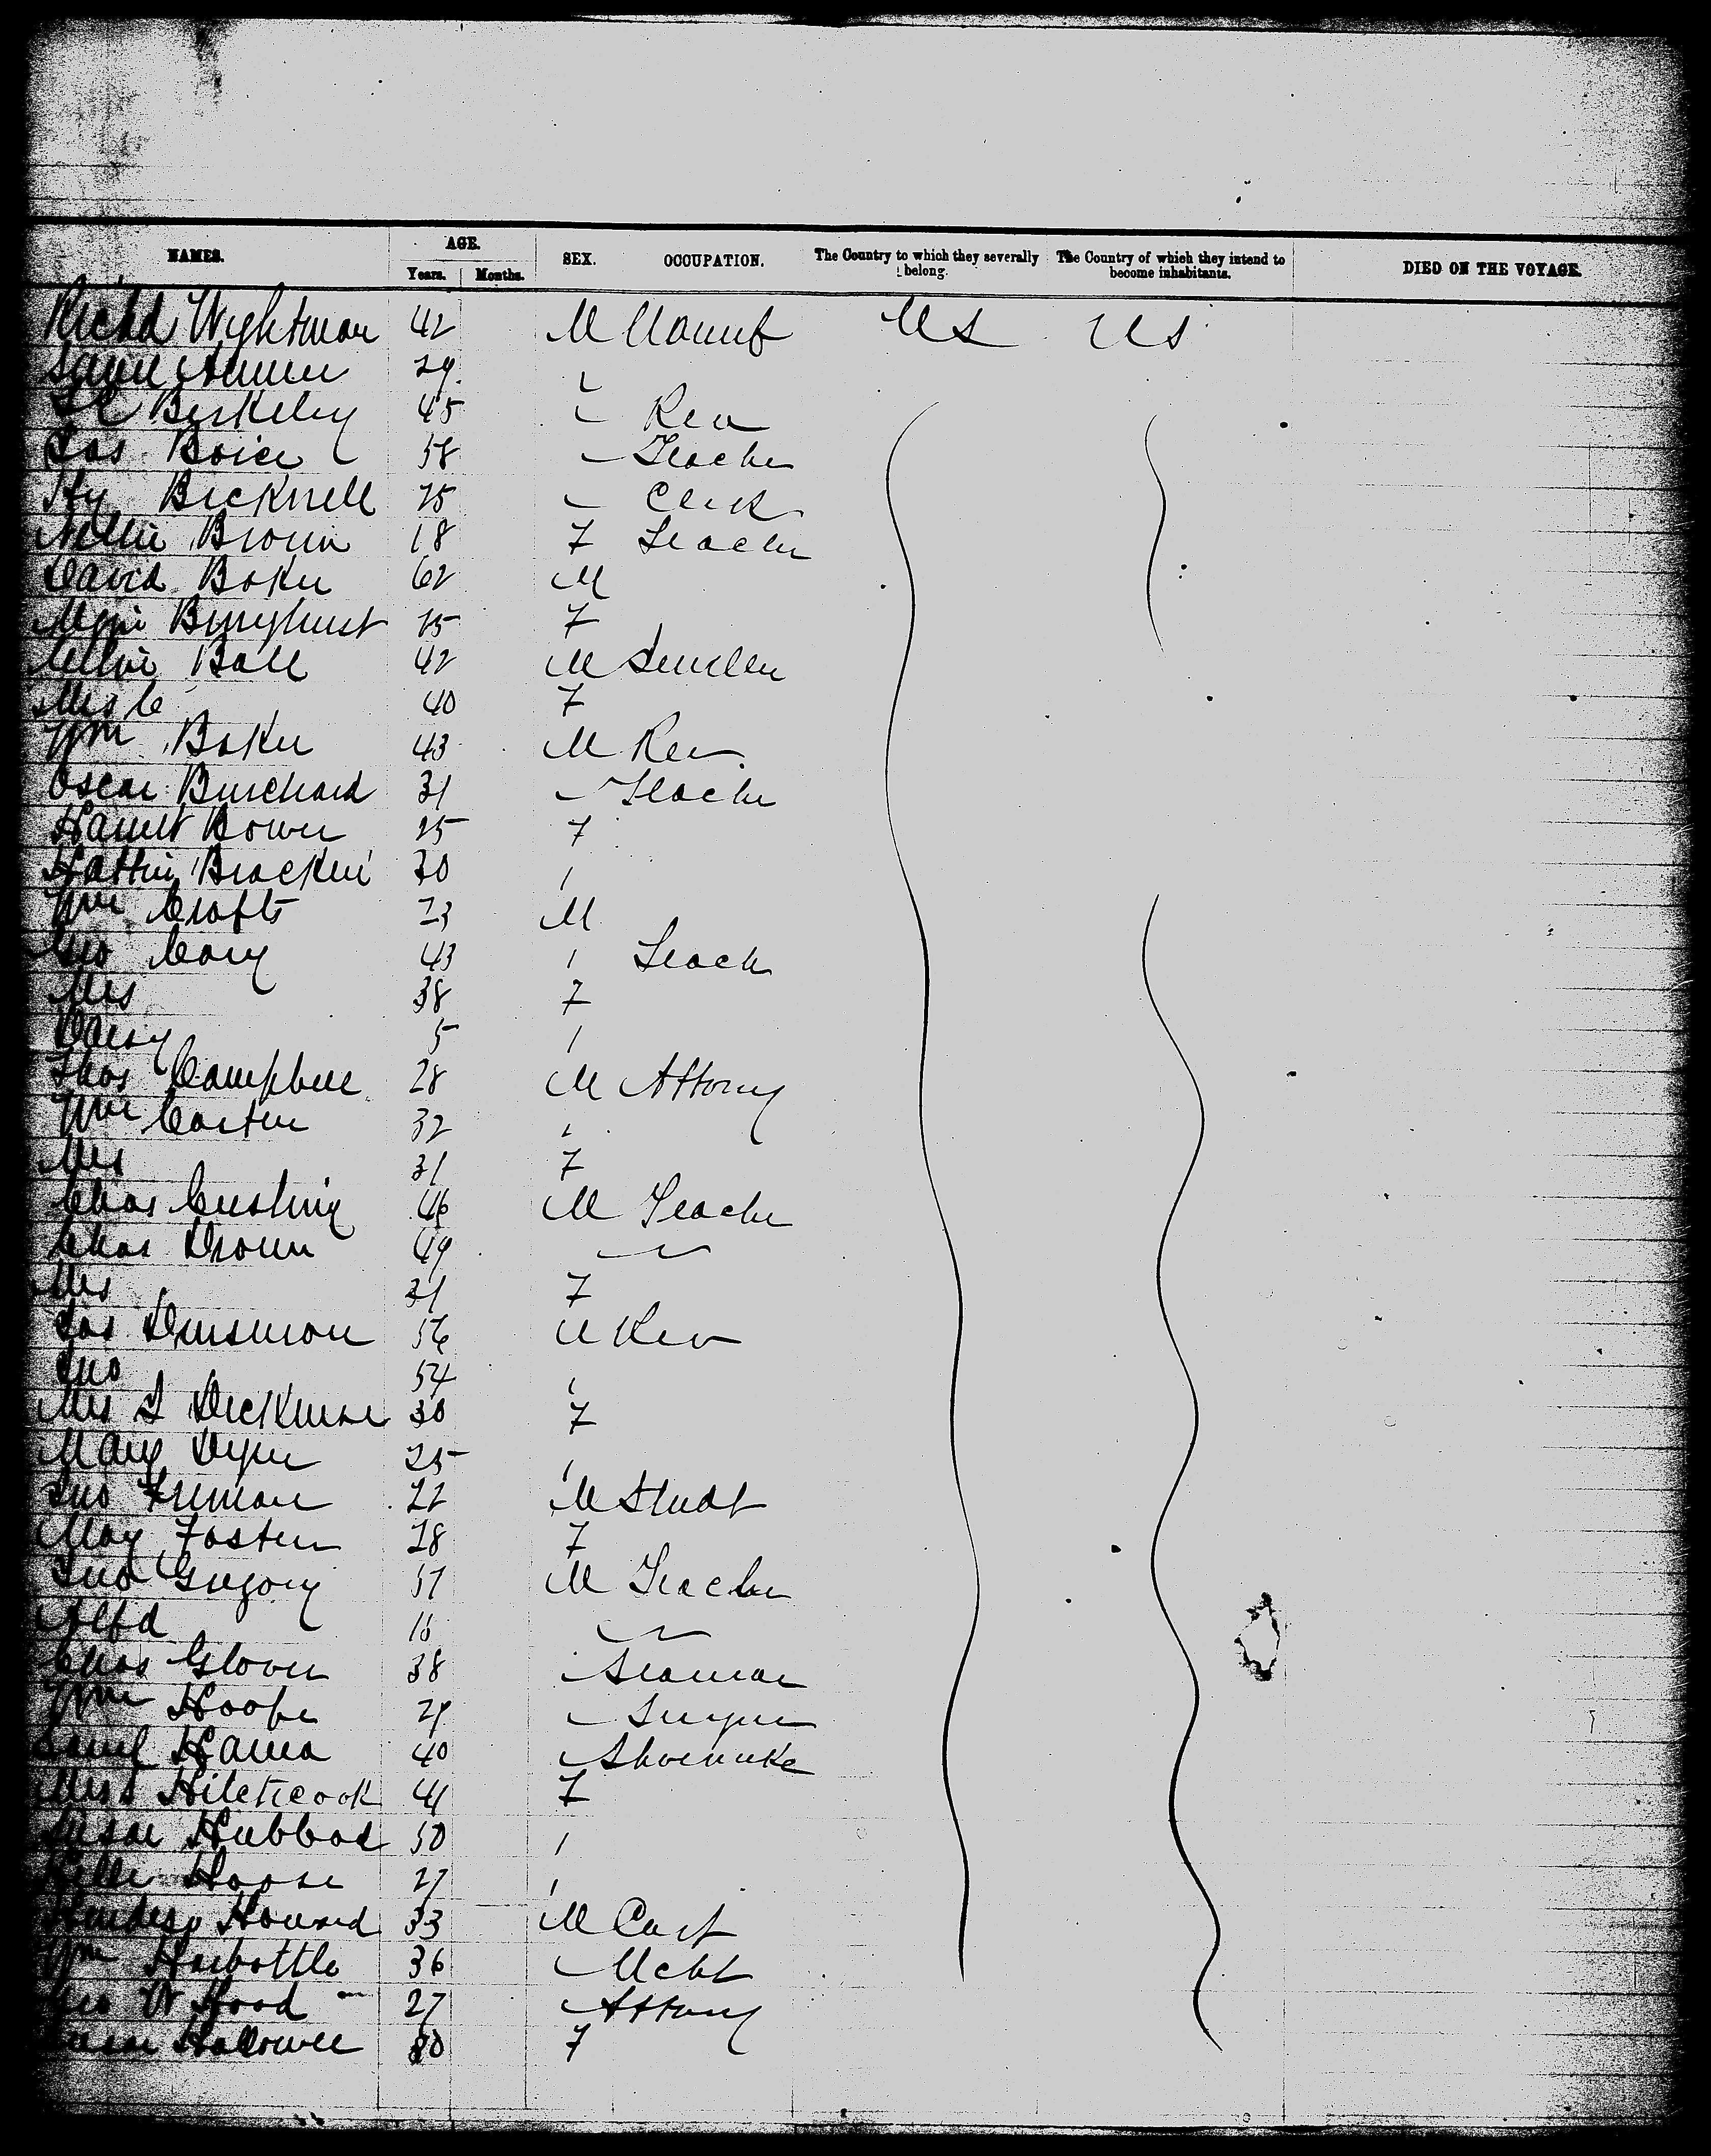 NAMES. AGE. SEX. OCCUPATION. The Country to which they severally belong. The Country of which they intend to become inhabitants. DIED ON THE VOYAGE.
Years. Months.
Richd Wightman 42 M Manuf US US
29
Berkeley 45 Rev
Jas Boice 58 Teacher
Hy Bicknell 25 Clerk
Nellie Brown 18 F Teacher
David Baker 62 M
F
Ball 42 M
Mrs C 40 F
Wm Baker 43 M Rev
Oscar Burchard 31 Teacher
Harriet Bower 25 F
Hattie Bracken 30
Wm Crafts 23 M
Geo Cary 43 Teach
Mrs 38 F
Daisy 5
Thos Campbell 28 M Attorny
Wm Carter 32
Mrs 31 F
Chas Cushing 46 M Teacher
Chas Drown 49
Mrs 31 F
Jas Dinsmore 56 M Rev
Jno 54
Mrs S Dickinson 30 F
Mary Dyer 25
Jno Freeman 22 M Studt
May Foster 28 F
Jno Gregory 57 M Teacher
Alfd 16
Chas Glover 38 Seaman
Wm Hooper 29
Saml Hanna 40 Shoemake
Miss Hitchcock 41 F
Susan Hubbard 50
27
Howard 33 M
Wm Harbottle 36 Mcht
Geo W Hood 27 Attorny
Hallowell 30 F